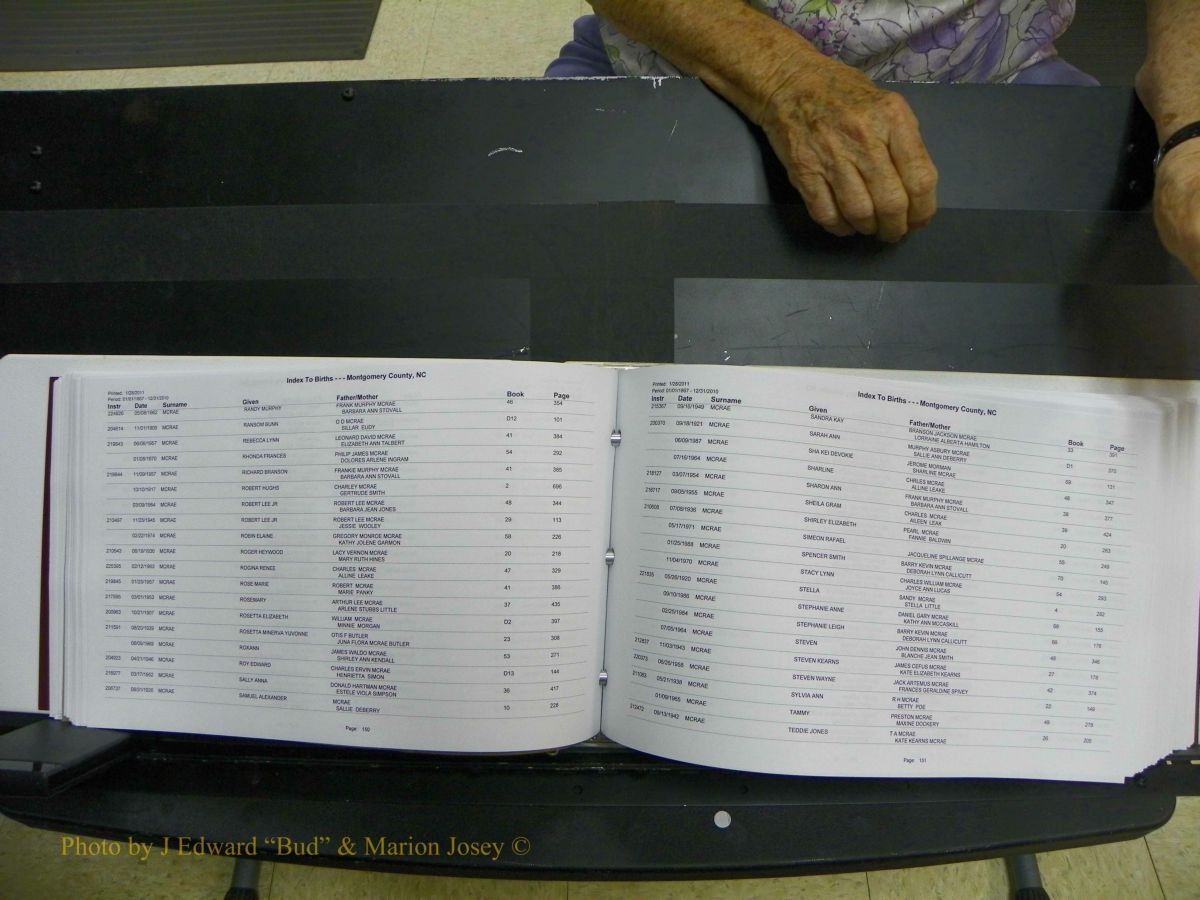 Index To Births - - - Montgomery County, NC
Printed: 1/28/2011
Period: 01/01/1867 - 12/31/2010
Instr Date Surname Given Father/Mother Book Page
224626 05/08/1962 MCRAE RANDY MURPHY FRANK MURPHY MCRAE 46 354
BARBARA ANN STOVALL
204614 11/01/1909 MCRAE RANSOM GUNN D D MCRAE D12 101
SILLAR EUDY
219843 06/06/1957 MCRAE REBECCA LYNN LEONARD DAVID MCRAE 41 384
ELIZABETH ANN TALBERT
01/08/1970 MCRAE RHONDA FRANCES PHILIP JAMES MCRAE 54 292
DOLORES ARLENE INGRAM
219844 11/09/1957 MCRAE RICHARD BRANSON FRANKIE MURPHY MCRAE 41 385
BARBARA ANN STOVALL
10/10/1917 MCRAE ROBERT HUGHS CHARLEY MCRAE 2 696
GERTRUDE SMITH
03/09/1964 MCRAE ROBERT LEE JR ROBERT LEE MCRAE 48 344
BARBARA JEAN JONES
213497 11/23/1945 MCRAE ROBERT LEE JR ROBERT LEE MCRAE 29 113
JESSIE WOOLEY
02/22/1974 MCRAE ROBIN ELAINE GREGORY MONROE MCRAE 58 226
KATHY JOLENE GARMON
210543 MCRAE ROGER HEYWOOD LACY VERNON MCRAE 20 218
MARY RUTH HINES
225395 02/12/1963 MCRAE ROGINA RENEE CHARLES MCRAE 47 329
ALLINE LEAKE
219845 01/29/1957 MCRAE ROSE MARIE ROBERT MCRAE 41 386
MARIE PANKY
217595 03/01/1953 MCRAE ROSEMARY ARTHUR LEE MCRAE 37 435
ARLENE STUBBS LITTLE
10/21/1907 MCRAE ROSETTA ELIZABETH WILLIAM MCRAE D2 397
MINNIE MORGAN
211591 08/20/1939 MCRAE ROSETTA MINERVA YUVONNE OTIS F BUTLER 23 308
JUNA FLORA MCRAE BUTLER
MCRAE ROXANN JAMES WALDO MCRAE 53 271
SHIRLEY ANN KENDALL
204923 MCRAE ROY EDWARD CHARLES ERVIN MCRAE D13 144
HENRIETTA SIMON
218277 03/17/1952 MCRAE SALLY ANNA DONALD HARTMAN MCRAE 36 417
ESTELE VIOLA SIMPSON
206737 MCRAE SAMUEL ALEXANDER MCRAE 10 228
SALLIE DEBERRY
Page: 150
Index To Births - - - Montgomery County, NC
Printed: 1/28/2011
Period: 01/01/1867 - 12/31/2010
Instr Date Surname Given Father/Mother Book Page
215367 09/16/1949 MCRAE SANDRA KAY BRANSON JACKSON MCRAE 33 391
LORRAINE ALBERTA HAMILTON
230370 09/18/1921 MCRAE SARAH ANN MURPHY ASBURY MCRAE D1 370
SALLIE ANN DEBERRY
06/09/1987 MCRAE SHA KEI DEVOKIE JEROME MORMAN 69 131
SHARLINE MCRAE
07/16/1964 MCRAE SHARLINE CHRLES MCRAE 48 347
ALLINE LEAKE
218127 03/07/1954 MCRAE SHARON ANN FRANK MURPHY MCRAE 38 277
BARBARA ANN STOVALL
218717 09/05/1955 MCRAE SHEILA GRAM CHARLES MCRAE 39 424
AILEEN LEAK
210608 07/08/1936 MCRAE SHIRLEY ELIZABETH PEARL MCRAE 20 283
FANNIE BALDWIN
05/17/1971 MCRAE SIMEON RAFAEL 55 249
JACQUELINE SPILLANGE MCRAE
01/25/1988 MCRAE SPENCER SMITH BARRY KEVIN MCRAE 70 145
DEBORAH LYNN CALLICUTT
11/04/1970 MCRAE STACY LYNN CHARLES WILLIAM MCRAE 54 293
JOYCE ANN LUCAS
221835 05/26/1920 MCRAE STELLA SANDY MCRAE 4 282
STELLA LITTLE
09/10/1986 MCRAE STEPHANIE ANNE DANIEL GARY MCRAE 68 155
KATHY ANN MCCASKILL
02/25/1984 MCRAE STEPHANIE LEIGH BARRY KEVIN MCRAE 66 176
DEBORAH LYNN CALLICUTT
07/05/1964 MCRAE STEVEN JOHN DENNIS MCRAE 48 346
BLANCHE JEAN SMITH
212837 11/03/1943 MCRAE STEVEN KEARNS JAMES CEFUS MCRAE 27 178
KATE ELIZABETH KEARNS
220373 06/26/1958 MCRAE STEVEN WAYNE JACK ARTEMUS MCRAE 42 374
FRANCES GERALDINE SPIVEY
211083 05/21/1938 MCRAE SYLVIA ANN R H MCRAE 22 149
BETTY POE
01/09/1965 MCRAE TAMMY PRESTON MCRAE 49 278
MAXINE DOCKERY
212472 09/13/1942 MCRAE TEDDIE JONES T A MCRAE 26 205
KATE KEARNS MCRAE
Page: 151
Photo by J Edward “Bud” & Marion Josey ©